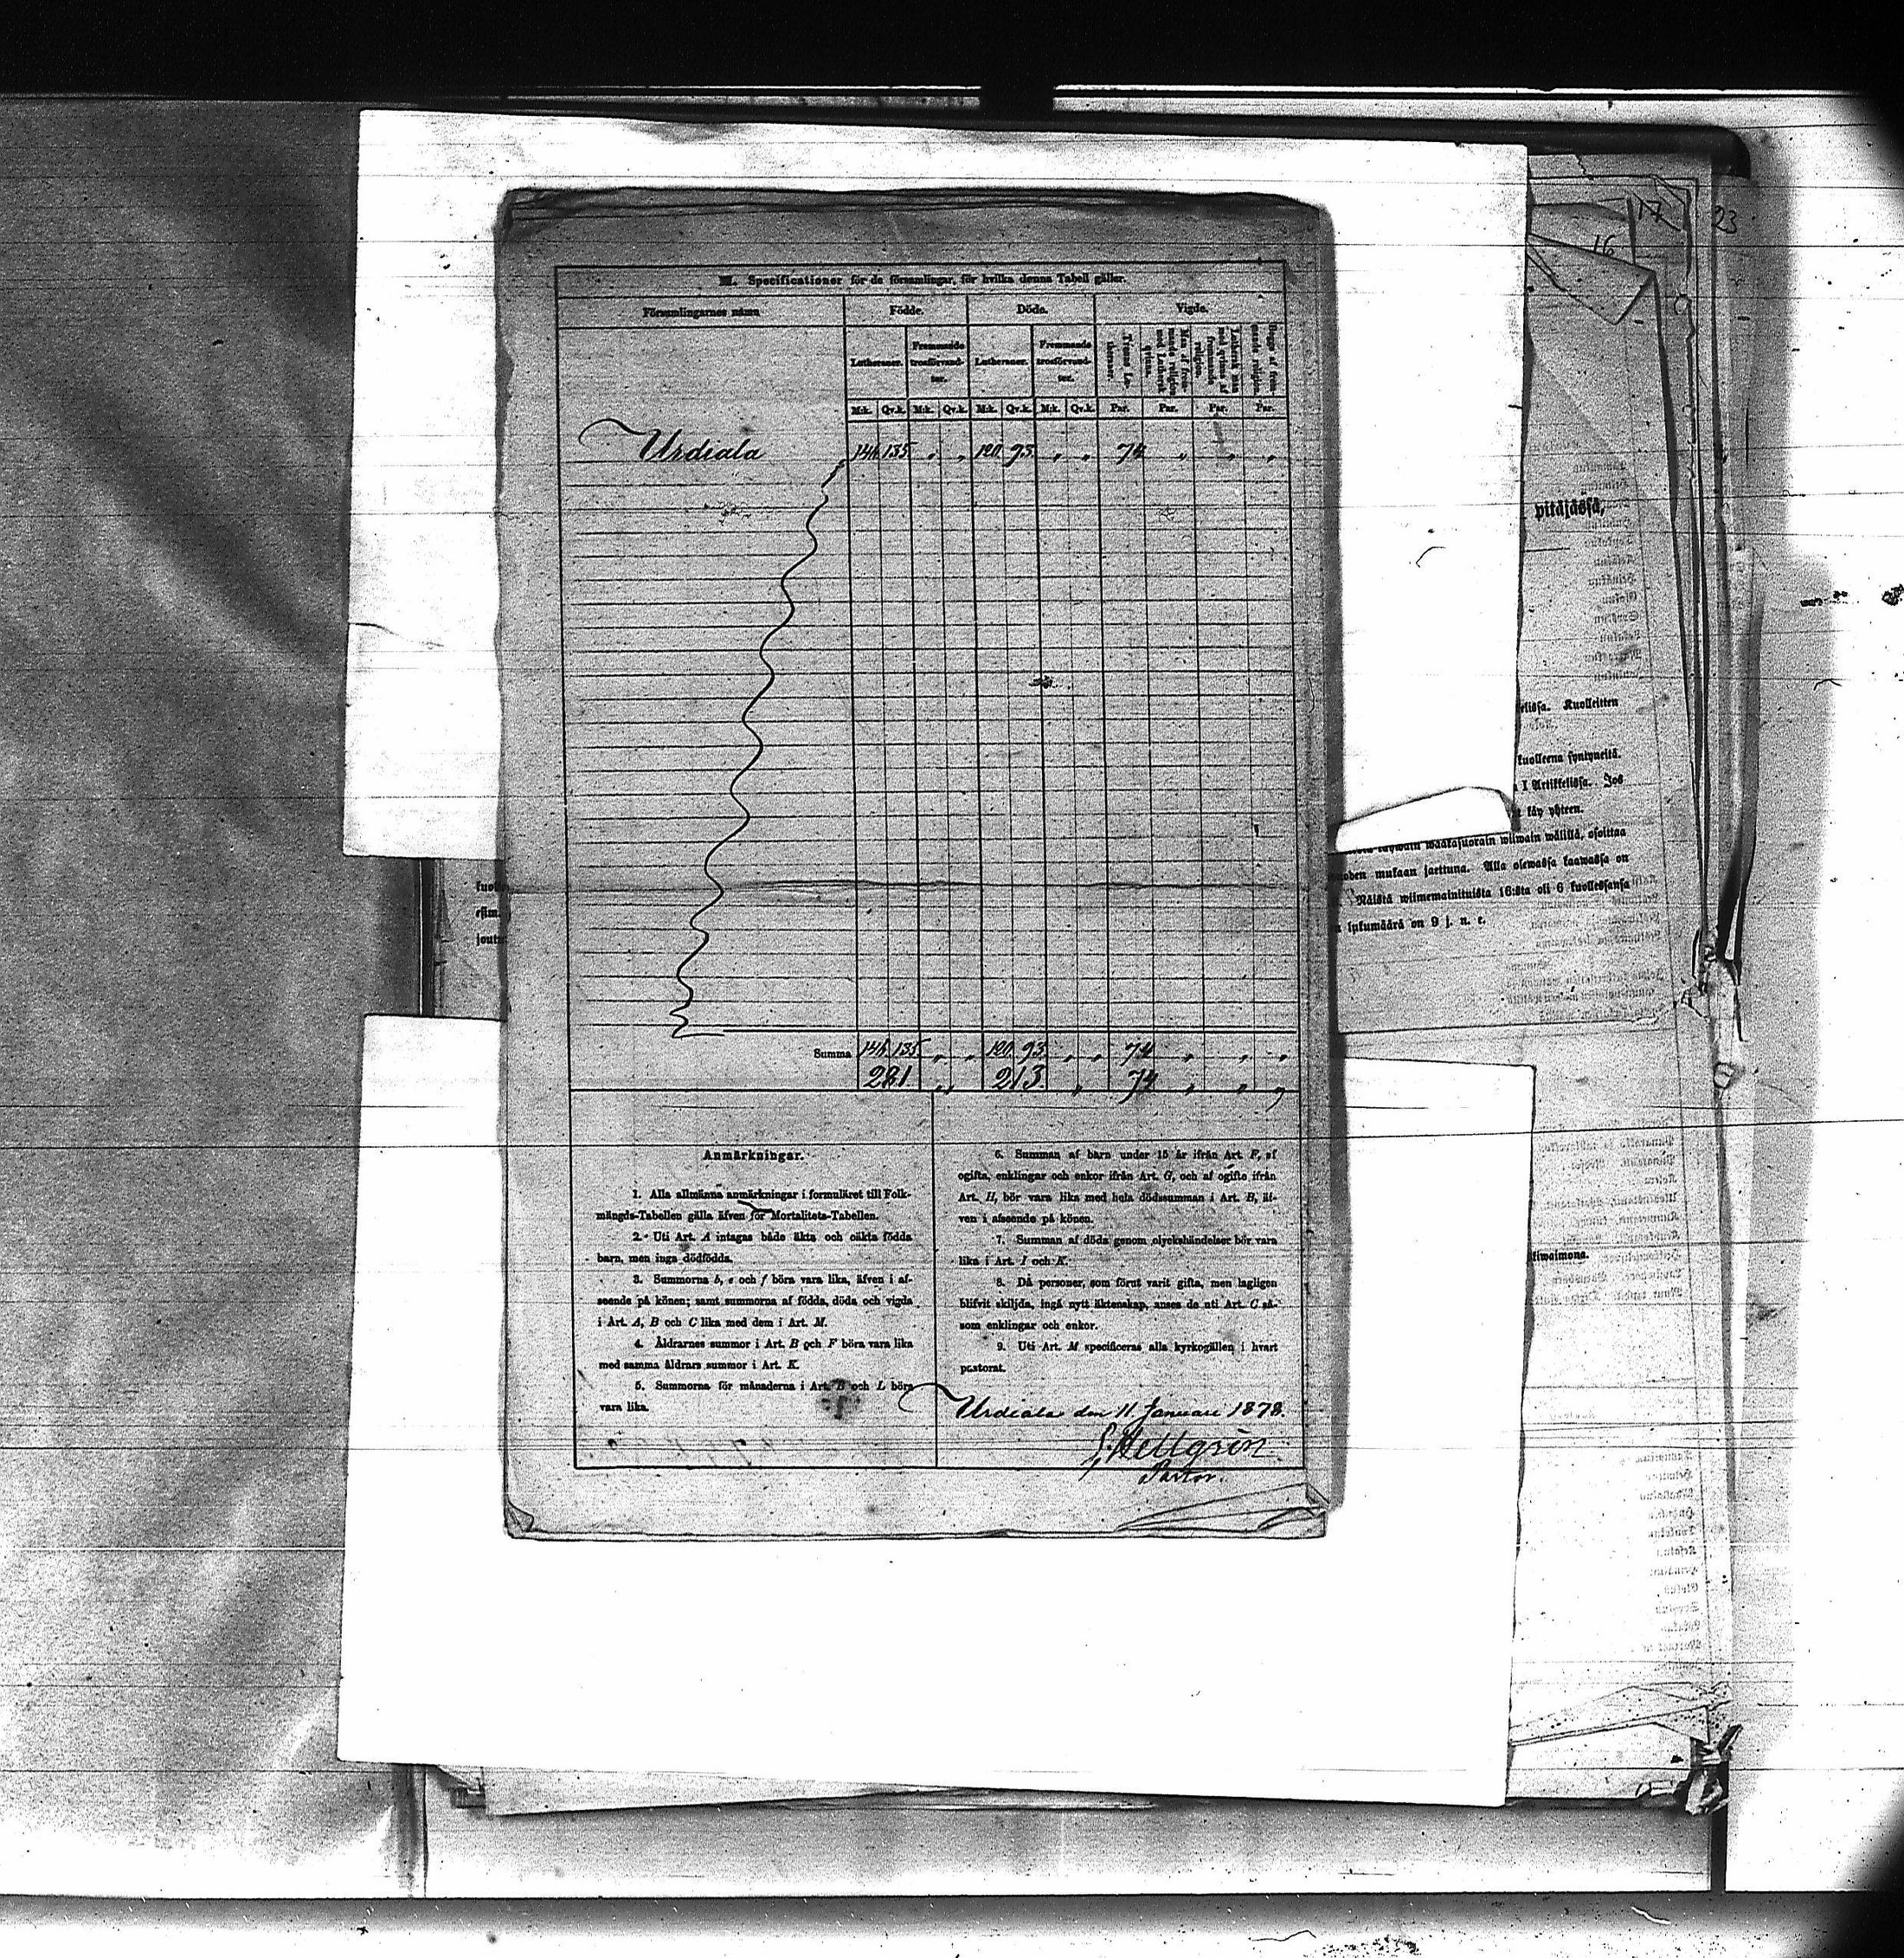 M. Specificationer för de församlingar, för hvilka denna Tabell gäller.
Församlingarnes namn
Födde.
Döde.
Vigde.
Lutheraner.
Fremmande trosförvandter.
Lutheraner.
Fremmande trosförvandter.
Tvenne Lutheraner.
Man af fremmande religion med Luthersk qvinna.
Luthersk man med qvinna af fremmande religion.
Begge af fremmande religion.
M:k. Qv.k. M:k. Qv.k. M:k. Qv.k. M:k. Qv.k. Par. Par. Par. Par.
Urdiala 146 135 „ „ 120 93 „ „ 74 „ „ „
Summa 146 135 „ „ 120 93 „ „ 74 „ „ „
281 „ 213 „ 74 „ „ „
Anmärkningar.
1. Alla allmänna anmärkningar i formuläret till Folk-
mängds-Tabellen gälla äfven för Mortalitets-Tabellen.
2. Uti Art. A intagas både äkta och oäkta födda
barn, men inga dödfödda.
3. Summorna b, e och f böra vara lika, äfven i af-
seende på könen; samt summorna af födda, döda och vigda
i Art. A, B och C lika med dem i Art. M.
4. Åldrarnes summor i Art. B och F böra vara lika
med samma åldrars summor i Art. K.
5. Summorna för månaderna i Art. B och L böra
vara lika.
6. Summan af barn under 15 år ifrån Art. F, af
ogifta, enklingar och enkor ifrån Art. G, och af ogifta ifrån
Art. H, bör vara lika med hela dödssumman i Art. B, äf-
ven i afseende på könen.
7. Summan af döda genom olyckshändelser bör vara
lika i Art. I och K.
8. Då personer, som förut varit gifta, men lagligen
blifvit skiljda, ingå nytt äktenskap, anses de uti Art. C så-
som enklingar och enkor.
9. Uti Art. M specificeras alla kyrkogällen i hvart
pastorat.
Urdiala den 11 Januari 1878.
Hellgrén
Pastor.
16
17
23
pitäjässä,
Kuolleitten
kuolleena syntyneitä.
I Artikkelissa. Jos
käy yhteen.
waakasuorain wiiwain wälillä, osoittaa
mukaan jaettuna. Alla olewassa kaawassa on
Näistä wiimemainituista 16:sta oli 6 kuollessansa
lukumäärä on 9 j. n. e.